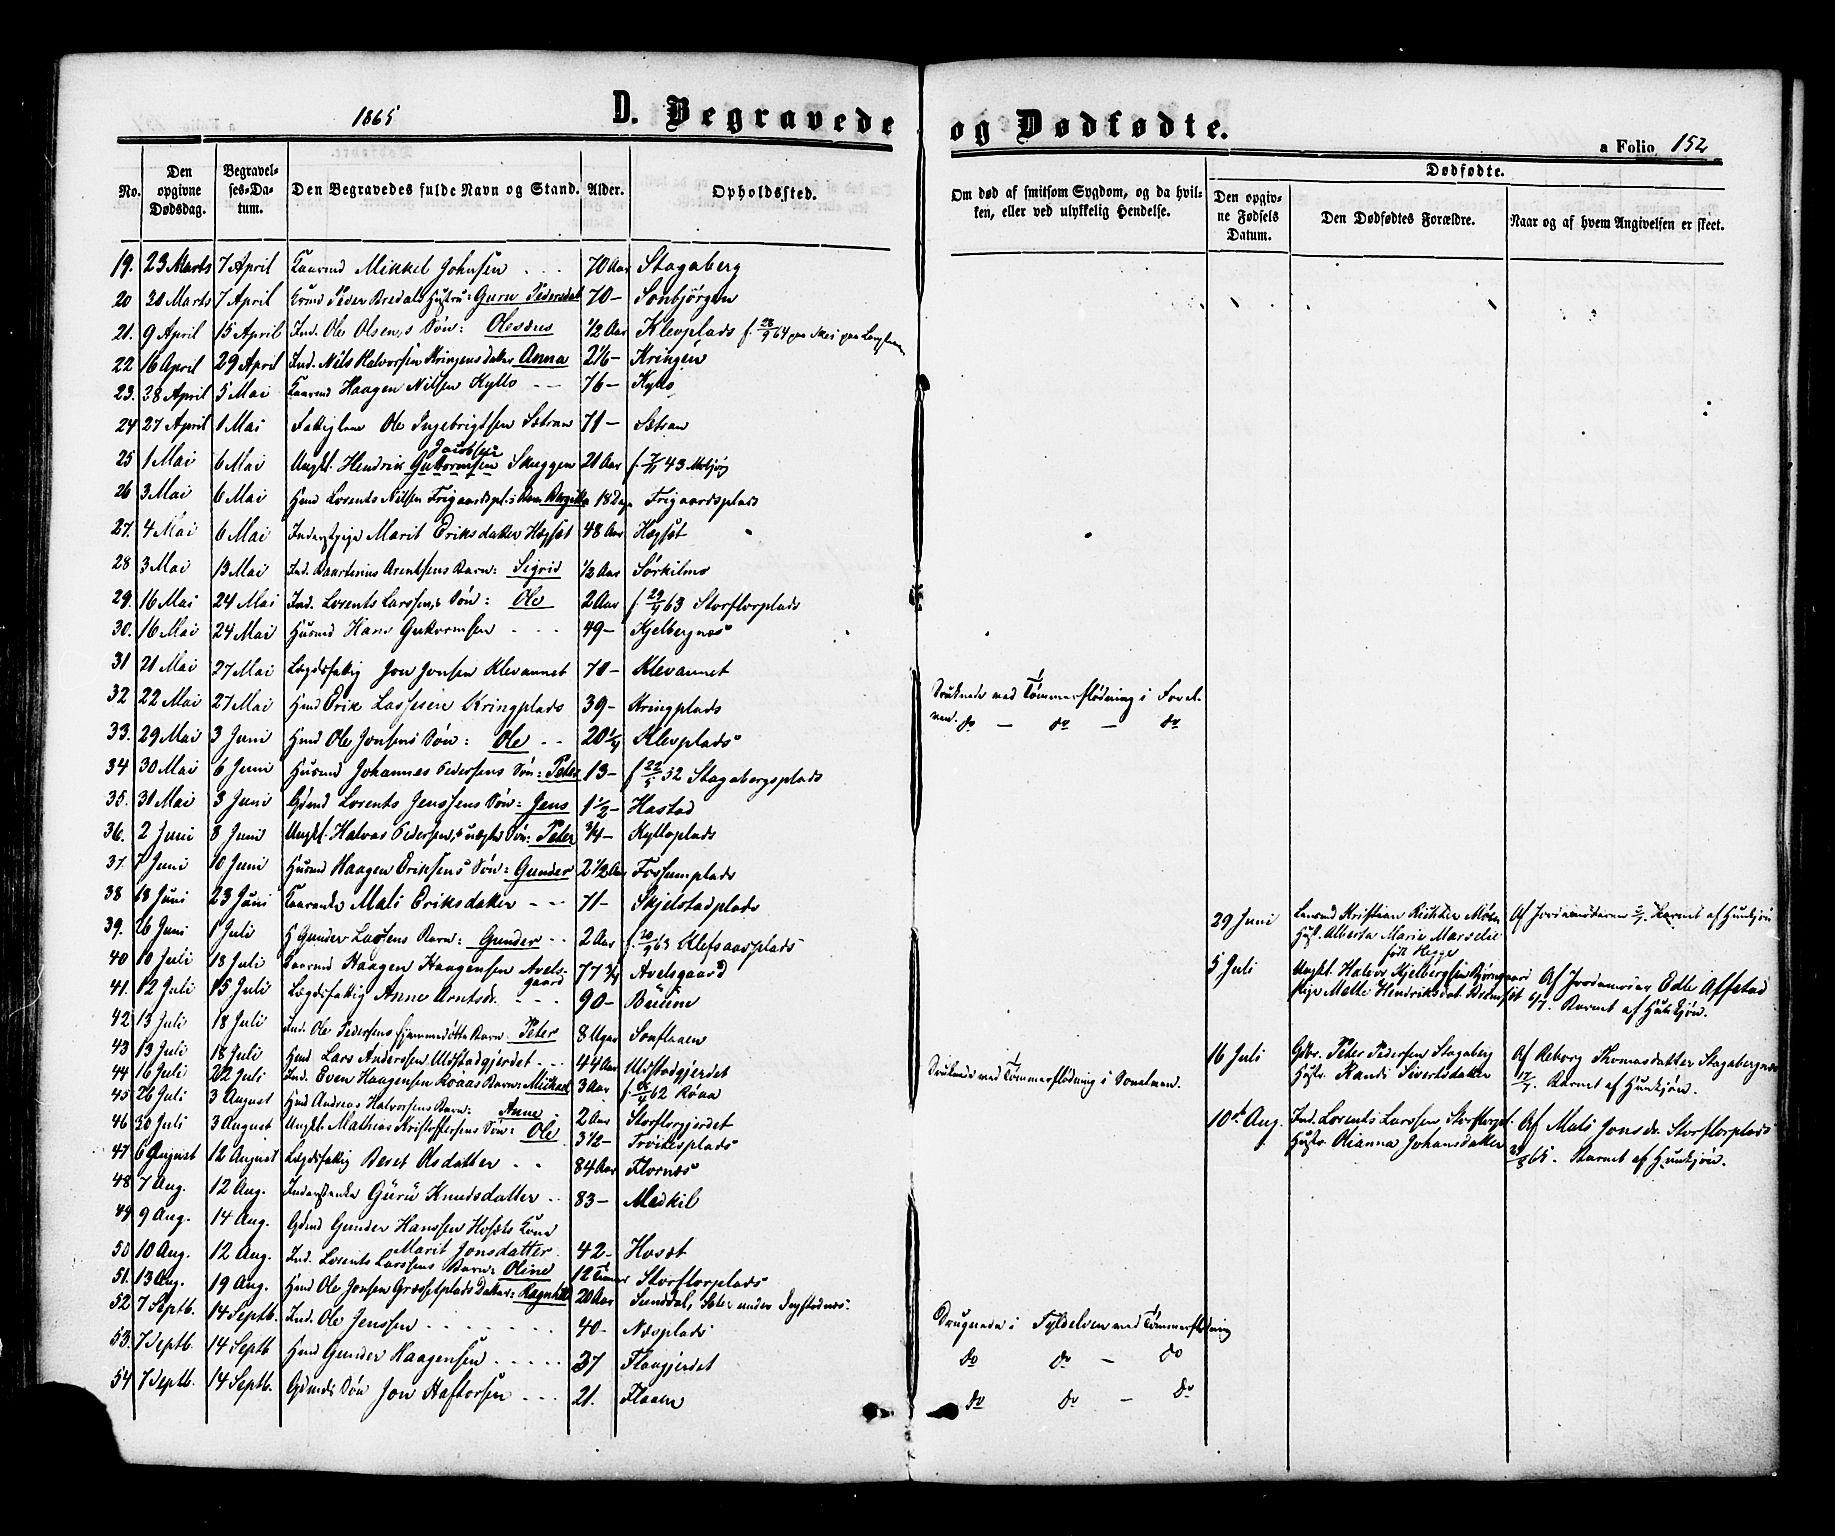 1865
D. Begravede og Dødfødte.
a Folio 152
No.
Den opgivne Dødsdag.
Begravelses-Datum.
Den Begravedes fulde Navn og Stand.
Alder.
Opholdssted.
Om død af smitsom Sygdom, og da hvilken, eller ved ulykkelig Hendelse.
Dødfødte.
Den opgivne Fødsels Datum.
Den Dødfødtes Forældre.
Naar og af hvem Angivelsen er skeet.
19. 23 Marts 7 April Kaarmd Mikkel Johnsen - - - 70 Aar Stagaberg
20 20 Marts 7 April Peder Bredals Hustru: Guru Pedersdat 70 - Sonbjørgen
21. 9 April 15 April Ind. Ole Olsen,s Søn: Olesæus 1/2 Aar Klevplads f. 28/9 64
22 16 April 29 April Ind. Nils Halvorsen Kringens dater Anna 2 1/6 - Kringen
23. 28 April 5 Mai Kaarmd Haagen Nilsen Kyllo - - 76 - Kyllo
24 27 April 1 Mai Fattiglem Ole Ingebrigtsen Sætran 71 - Sætran
25 1 Mai 6 Mai Ungkl. Hendrik Guttormsen Jacobsen Skuggen 21 Aar f. 7/11 43
26 3 Mai 6 Mai Hmd Lorents Nilsen Frigaardspl.s Barn Bergitta 18 Dage Frigaardsplads
27. 4 Mai 6 Mai Inderstpige Marit Eriksdatter Hægset 48 Aar Hægset
28 3 Mai 13 Mai Ind. Arentsens Barn: Sigrid 1/2 Aar Sørkilmo
29. 16 Mai 24 Mai Ind. Lorents Larssen,s Søn: Ole 2 Aar f. 29/4 63 Storflorplads
30. 16 Mai 24 Mai Husmd Hans Guttormsen - - - 49 - Kjelbergnæs
31 21 Mai 27 Mai Lægdsfattig Jon Jonsen Klevannet 70 - Klevannet
32 22 Mai 27 Mai Hmd Erik Larssen Kringplads 39 - Kringplads Druknede ved Tømmerflødning i
33. 29 Mai 3 Juni Hmd Ole Jonsens Søn: Ole - - 20 1/4 Klevplads do - do - do
34 30 Mai 6 Juni Husmd Johannes Pedersens Søn: Peter 13 - f 22/5 52 Stagabergsplads
35. 31 Mai 3 Juni Gdmd Lorents Jenssens Søn: Jens 1 1/2 - Hastad
36. 2 Juni 8 Juni Ungkl. Halvor Pedersen,s uægte Søn: Peter 3/4 - Kylloplads
37. 7 Juni 10 Juni Husmd Haagen Eriksens Søn: Gunder 2 1/2 Aar Fossumplads
38 18 Juni 23 Juni Kaarenke Mali Eriksdatter - - 71 - Skjelstadplads
39. 26 Juni 1 Juli H Gunder Larsens Barn: Gunder - - 2 Aar f. 10/9 63 Klefsaasplads
29 Juni Lensmd Kristian Richter Møser Hust. Alberta Marie Marselie født Hegge Af Jordemoderen Barnet af Hunkjøn
40 10 Juli 18 Juli Kaarmd Haagen Haagensen Avelsgaard 77 3/4 Avelsgaard
5 Juli Ungkl. Halvor Kjelbergsen Bjørngaard Pige Mette Hendriksdat. Af Jordemoder Edle Affstad 6/7. Barnet af Hunkjøn.
41. 12 Juli 15 Juli Lægdsfattig Anne Arntsd. - - - 90 -
42 13 Juli 18 Juli Ind. Ole Pedersens hjemmedøbte Barn: Peter 8 Uger Sonflaaen
43 13 Juli 18 Juli Hmd Lars Anderssen Uldstadgjerdet - - - 44 Aar Uldstadgjerdet Druknede ved Tømmerflødning i Sonelven.
16 Juli Gdbr. Peter Pedersen Stagaberg Hustr. Randi Sivertsdatter Af Reborg Thomasdatter Stagabergnæs 17/7. Barnet af Hunkjøn.
44 16 Juli 22 Juli Ind. Even Haagensen Roaas Barn: Mickael 3 Aar 62 Røaa
45 26 Juli 3 August Hmd Andreas Halvorsens Barn: Anne 2 Aar Storflorgjerdet
46 30 Juli 3 August Ungkl. Mathias Kristoffersens Søn: Ole 3 1/2 - Trøitesplads
10de Aug. Ind. Lorents Larssen Storflorpl. Hustr. Olianna Johansdatter Af Mali Jonsdr. Storflorplads 29/8 65. Barnet af Hunkjøn.
47 6 August 12 August Lægdsfattig Beret Olsdatter - - 84 Aar Flornæs
48 7 Aug. 12 Aug. Inderstenke Guru Knudsdatter - - 83 - Mæskil
49 9 Aug. 14 Aug. Gdmd Gunder Hanssen Hofsets Kone Marit Jonsdatter 42 - Hosæt
50 10 Aug. 12 Aug. Ind. Lorents Larssens Barn: Oline 12 Timer Storflorplads
51. 13 Aug. 19 Aug. Hmd Ole Jonsen Græsletplads Datter: Ragnhild 20 Aar Sunddal,
52 7 Septb. 14 Septb. Ind. Ole Jenssen - - - - - - - 40 - Næsplads Drugnede i Tydelven ved Tømmerflødning
53. 7 Septb. 14 Septb Hmd Gunder Haagensen - - - - - 37 Flaagjerdet do do - do
54 7 Septb. 14 Septb. Gdmds Søn Jon Haftorsen - - - 21. Flaaen do do - do